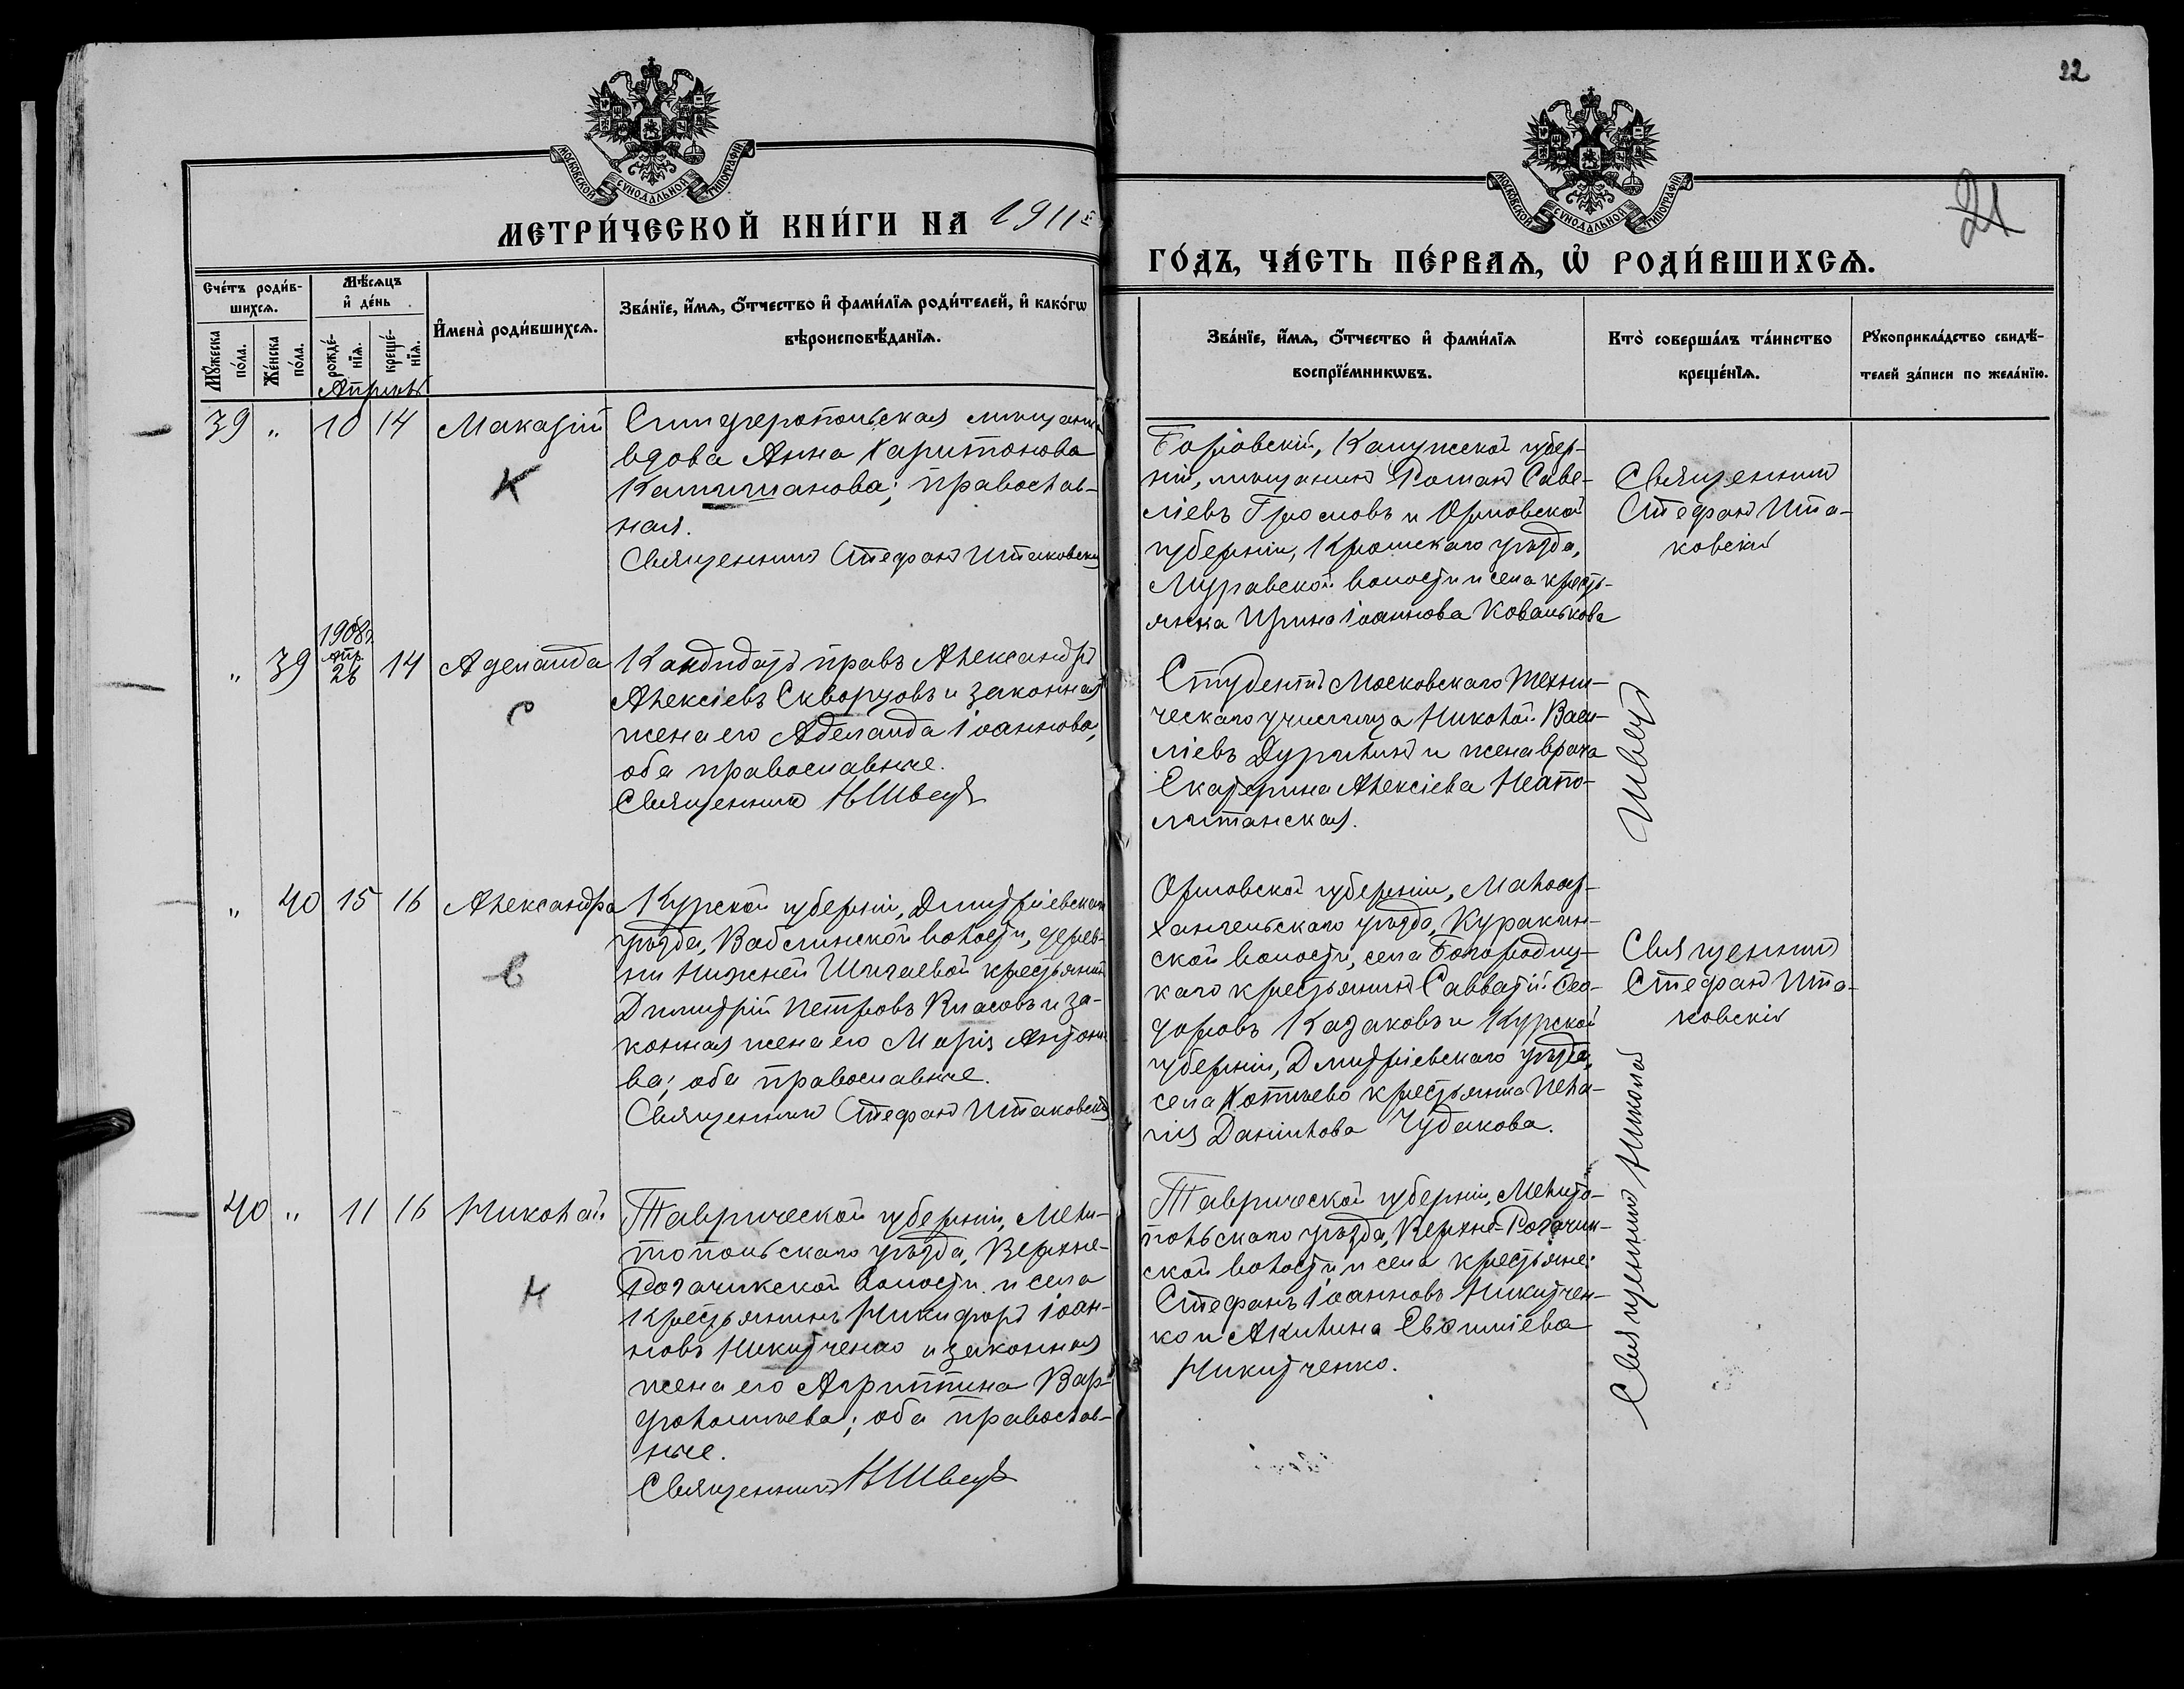 22
21
МОСКОВСКОЙ СѴНОДАЛЬНОЙ ТИПОГРАФІИ
МОСКОВСКОЙ СѴНОДАЛЬНОЙ ТИПОГРАФІИ
МЕТРИ́ЧЕСКОЙ КНИ́ГИ НА 1911й
ГО́ДЪ, ЧА́СТЬ ПЕ́РВАѦ, Ѡ҆ РОДИ́ВШИХСѦ.
Сче́тъ роди́в-
шихсѧ.
Мѣ́сяцъ
и҆ де́нь
Мꙋ́жеска по́ла.
Же́нска по́ла.
рожде́-
нїѧ.
креще́-
нїѧ.
И҆мена̀ роди́вшихсѧ.
Зва́нїе, и҆́мѧ, ѻ҆́тчество и҆ фами́лїѧ роди́телей, и҆ како́гѡ
вѣроисповѣ́данїѧ.
Зва́нїе, и҆́мѧ, ѻ҆́тчество и҆ фами́лїѧ
воспрїе́мникѡвъ.
Кто̀ соверша́лъ та́инство
креще́нїѧ.
Рꙋкоприкла́дство свидѣ́-
телей за́писи по жела́нїю.
Апрѣль
39 " 10 14 Макарій
К
Симферопольская мѣщанка
вдова Анна Харитонова
Калишанова; православ-
ная.
Священникъ Стефанъ Итаковскій
Боровскій, Калужской губер-
ніи, мѣщанинъ Романъ Саве-
ліевъ Грюсмовъ и Орловской
губерніи, Кромскаго уѣзда,
Муравской волости и села кресть-
янка Ирина Іоаннова Ковалькова
Священникъ
Стефанъ Ита-
ковскій
" 39 1908 г. апр. 26 14 Аделаида
С
Кандидатъ правъ Александръ
Алексіевъ Скворцовъ и законная
жена его Аделаида Іоаннова,
оба православные.
Священникъ Н Швецъ
Студентъ Московскаго Техни-
ческаго училища Николай Васи-
ліевъ Дурилинъ и жена врача
Екатерина Алексіева Неапо-
литанская.
Священникъ Николай Швецъ
" 40 15 16 Александра
В
Курской губерніи, Дмитріевскаго
уѣзда, Ваблинской волости, дерев-
ни Нижней Шагаевой крестьянинъ
Димитрій Петровъ Власовъ и за-
конная жена его Марія Антоно-
ва; оба православные.
Священникъ Стефанъ Итаковскій
Орловской губерніи, Малоар-
хангельскаго уѣзда, Куракин-
ской волости, села Богородиц-
каго крестьянинъ Савватій Ѳео-
доровъ Казаковъ и Курской
губерніи, Дмитріевскаго уѣзда,
села Копѣево крестьянка Пела-
гія Даніилова Чудакова.
Священникъ
Стефанъ Ита-
ковскій
40 " 11 16 Николай
Н
Таврической губерніи, Мели-
топольскаго уѣзда, Верхне-
Рогачикской волости и села
крестьянинъ Никифоръ Іоан-
новъ Никитченко и законная
жена его Агриппина Вар-
ѳоломеева; оба православ-
ные.
Священникъ Н Швецъ
Таврической губерніи, Мелито-
польскаго уѣзда, Верхне-Рогачик-
ской волости и села крестьяне:
Стефанъ Іоанновъ Никитчен-
ко и Акилина Евѳиміева
Никитченко.